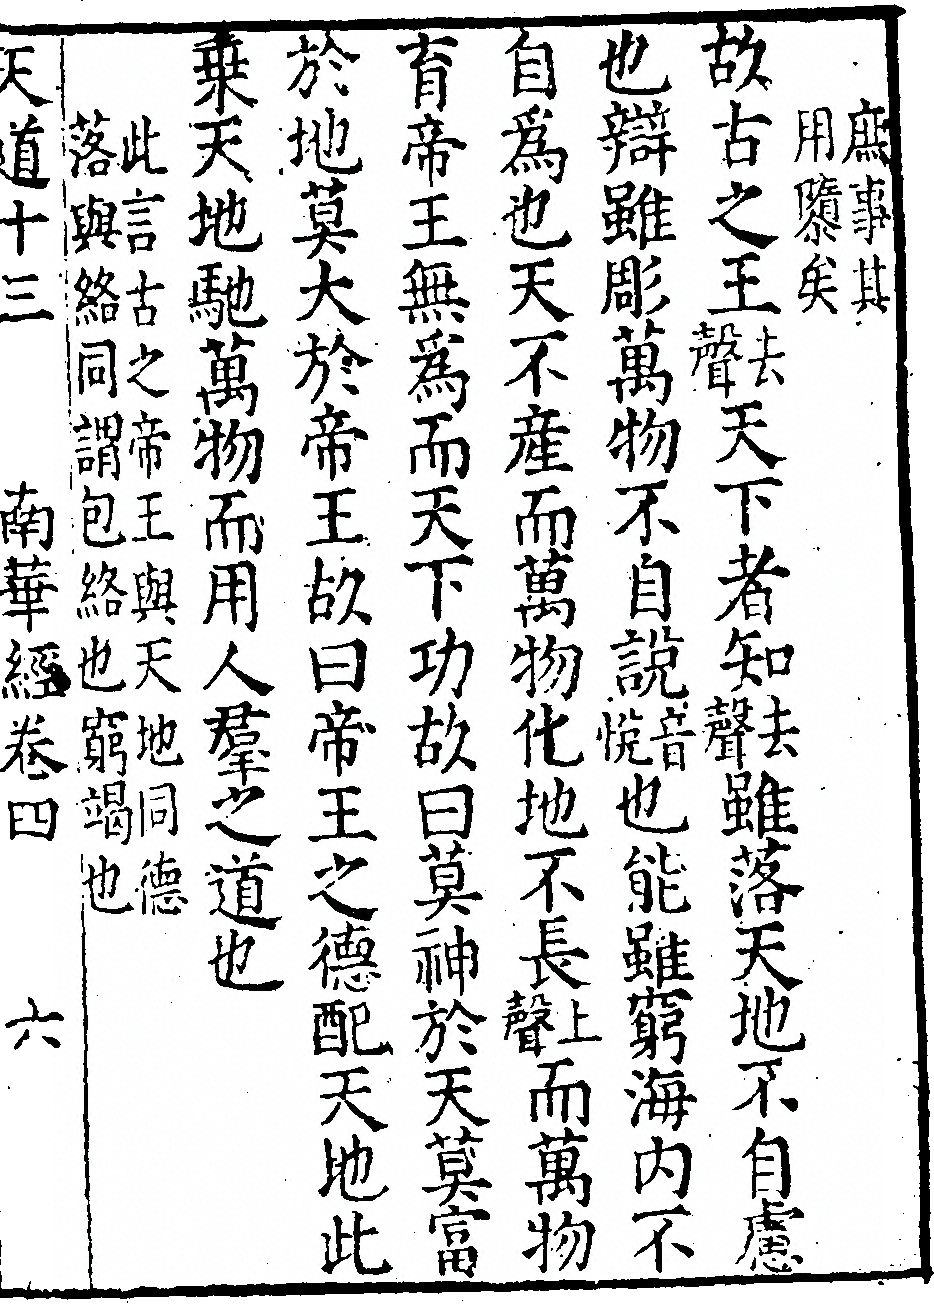 庶事其
用隳矣
故古之王去聲天下者知去聲雖落天地不自慮
也辯雖彫萬物不自說音悅也能雖窮海内不
自爲也天不産而萬物化地不長上聲而萬物
育帝王無爲而天下功故曰莫神於天莫富
於地莫大於帝王故曰帝王之德配天地此
乗天地馳萬物而用人羣之道也
此言古之帝王與天地同德
落與絡同謂包絡也窮竭也
天道十三 南華經卷四 六